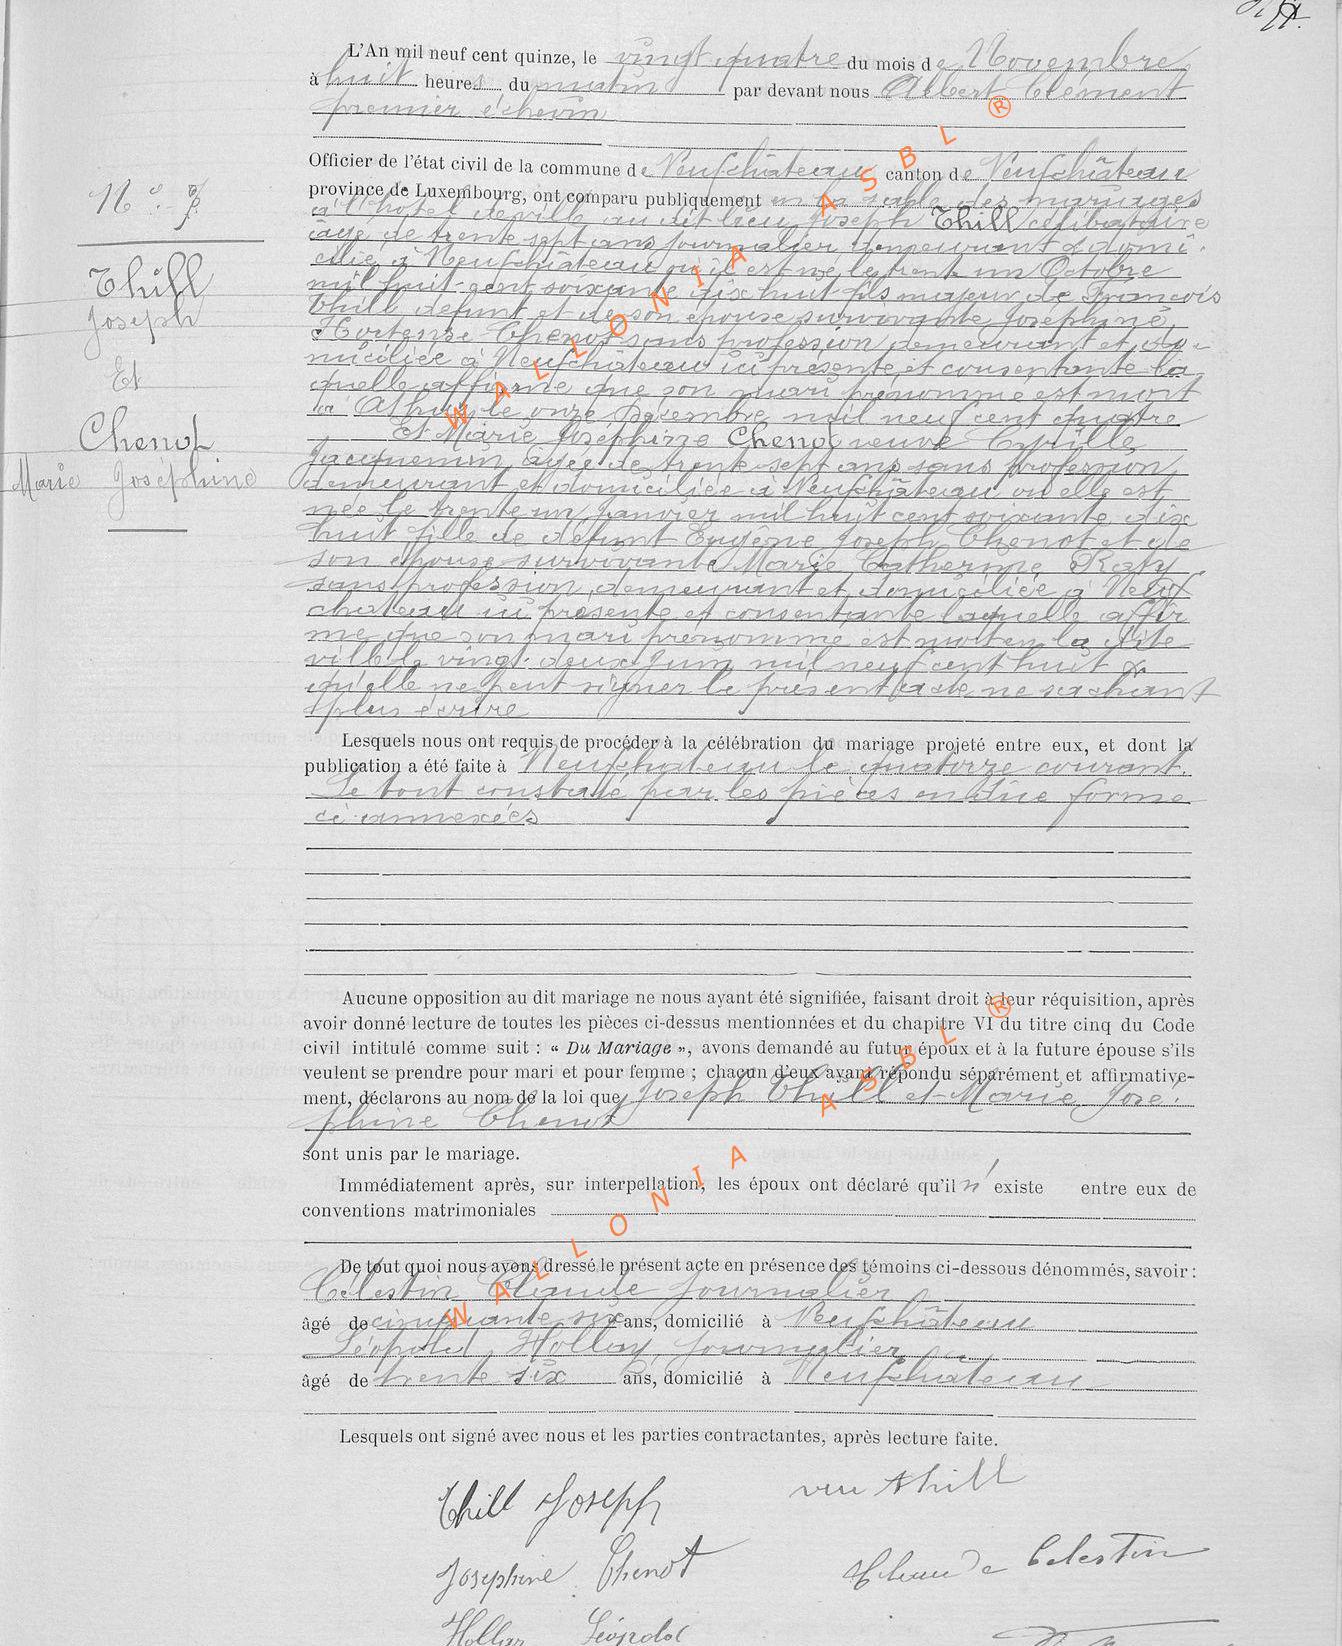 L'An mil neuf cent quinze, le vingt quatre du mois de Novembre
à huit heures du matin par devant nous Albert Clément
premier échevin
Officier de l'état civil de la commune de Neufchâteau canton de Neufchâteau
province de Luxembourg, ont comparu publiquement en la salle des mariages
à l'hôtel de ville au dit lieu Joseph Thill célibataire
âgé de trente sept ans journalier, demeurant & domi-
cilié à Neufchâteau où il est né le trente un Octobre
mil huit-cent soixante dix huit fils majeur de François
Thill défunt et de son épouse survivante Joséphine
Hortense Chenot sans profession demeurant et do-
miciliée à Neufchâteau ici présente et consentante la-
quelle affirme que son mari prénommé est mort
à Athus le onze Décembre mil neuf cent quatre
Et Marie Joséphine Chenot veuve Cyrille
Jacquemin âgée de trente-sept ans sans profession,
demeurant et domiciliée à Neufchâteau où elle est
née le trente un Janvier mil huit cent soixante dix
huit fille de défunt Eugène Joseph Chenot et de
son épouse survivante Marie Catherine Raty
sans profession, demeurant et domiciliée à Neuf
château ici présente et consentante laquelle affir
me que son mari prénommé est mort en la dite
ville le vingt-deux Juin mil neuf cent huit &
qu'elle ne peut signer le présent acte ne sachant
plus écrire
N°. 7
Thill
Joseph
Et
Chenot
Marie Joséphine
Lesquels nous ont requis de procéder à la célébration du mariage projeté entre eux, et dont la
publication a été faite à Neufchateau le quatorze courant.
Le tout constaté par les pièces en due forme
ci annexées
Aucune opposition au dit mariage ne nous ayant été signifiée, faisant droit à leur réquisition, après
avoir donné lecture de toutes les pièces ci-dessus mentionnées et du chapitre VI du titre cinq du Code
civil intitulé comme suit : « Du Mariage », avons demandé au futur époux et à la future épouse s'ils
veulent se prendre pour mari et pour femme ; chacun d'eux ayant répondu séparément et affirmative-
ment, déclarons au nom de la loi que Joseph Thill et Marie José-
phine Chenot
sont unis par le mariage.
Immédiatement après, sur interpellation, les époux ont déclaré qu'il n'existe entre eux de
conventions matrimoniales
De tout quoi nous avons dressé le présent acte en présence des témoins ci-dessous dénommés, savoir :
Célestin Claude journalier
âgé de cinquante six ans, domicilié à Neufchâteau
Léopold Hollay, journalier
âgé de trente six ans, domicilié à Neufchâteau
Lesquels ont signé avec nous et les parties contractantes, après lecture faite.
Thill Joseph
veu thill
Josephine Chenot
Claude Celestin
Léopold
WALLONIA ASBL ®
WALLONIA ASBL ®